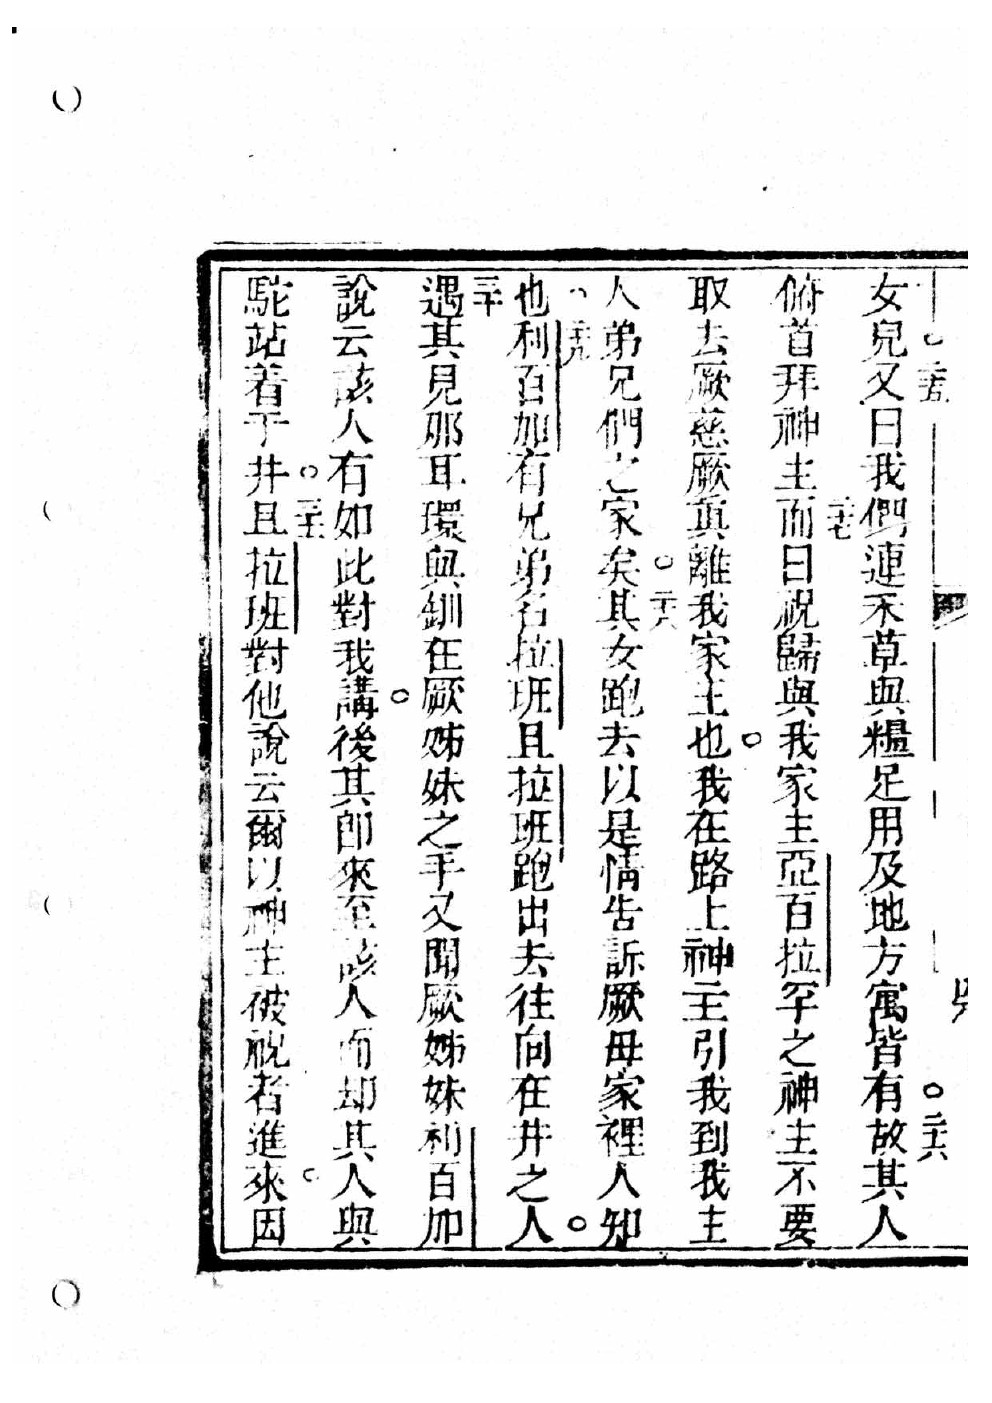 女兒又曰我們連禾草與糧足用及地方寓皆有故其人
二五
二六
俯首拜神主而曰祝歸與我家主亞百拉罕之神主不要
二七
取去厥慈厥真離我家主也我在路上神主引我到我主
人弟兄們之家矣其女跑去以是情告訴厥母家裡人知
二八
也利百加有兄弟名拉班且拉班跑出去往向在井之人
二九
遇其見那耳環與釧在厥姊妹之手又聞厥姊妹利百加
三十
說云該人有如此對我講後其卽來至該人而却其人與
駝站着于井且拉班對他說云爾以神主被祝者進來因
三一